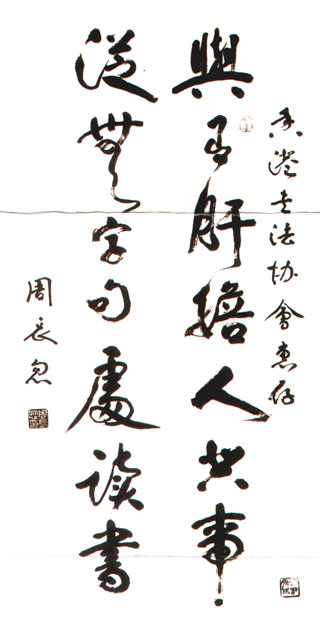 香港书法协會惠存
與有肝膽人共事
從無字句處读書
周